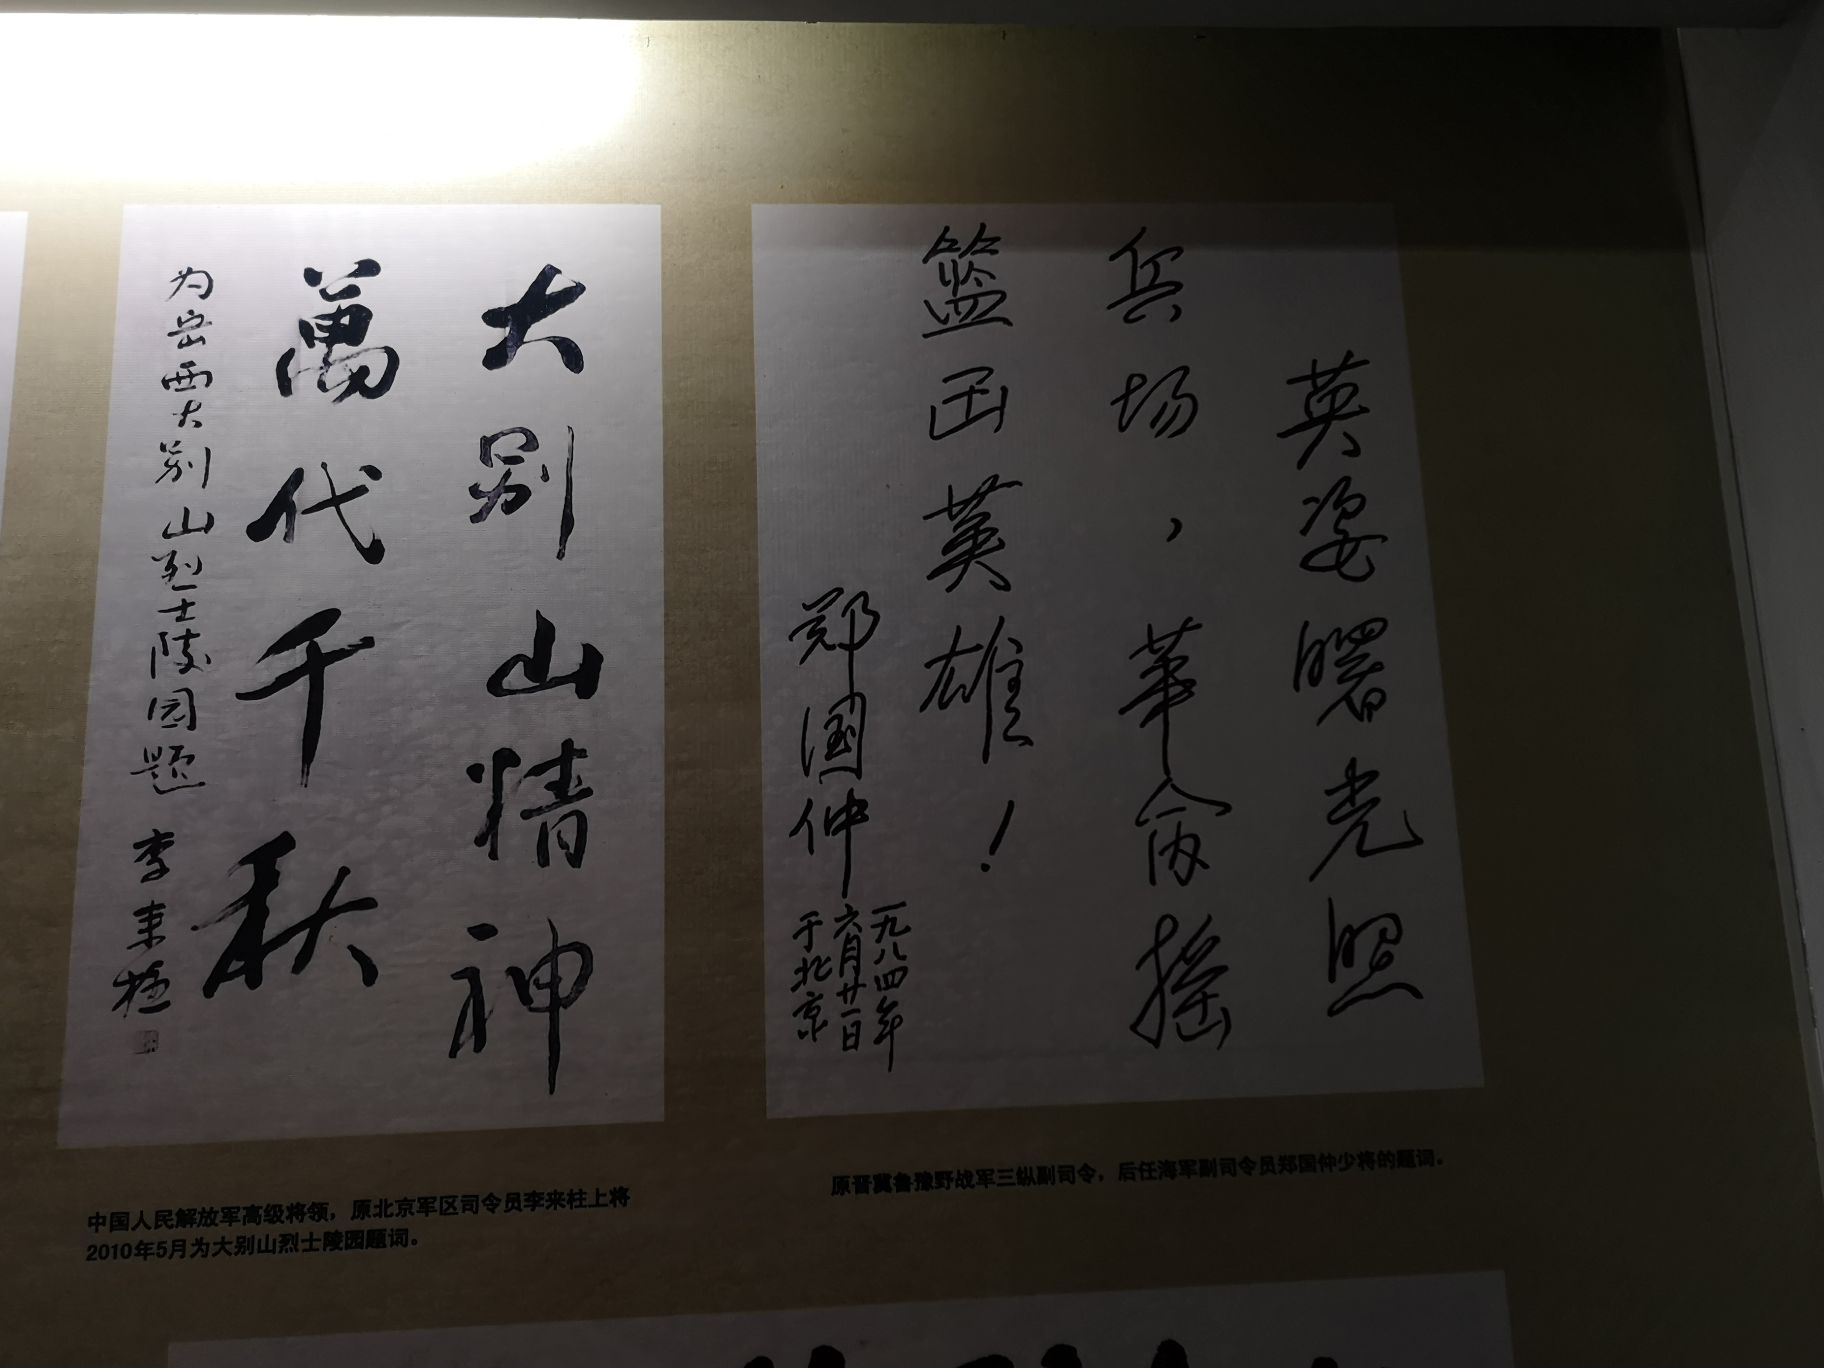 大别山精神
萬代千秋
为岳西大别山烈士陵园题 李来柱
中国人民解放军高级将领，原北京军区司令员李来柱上将
2010年5月为大别山烈士陵园题词。
英姿曙光照
兵场，華摇
篮英雄！
郑国仲
一九八四年
六月廿一日
于北京
原晋冀鲁豫野战军三纵副司令，后任海军副司令员郑国仲少将的题词。